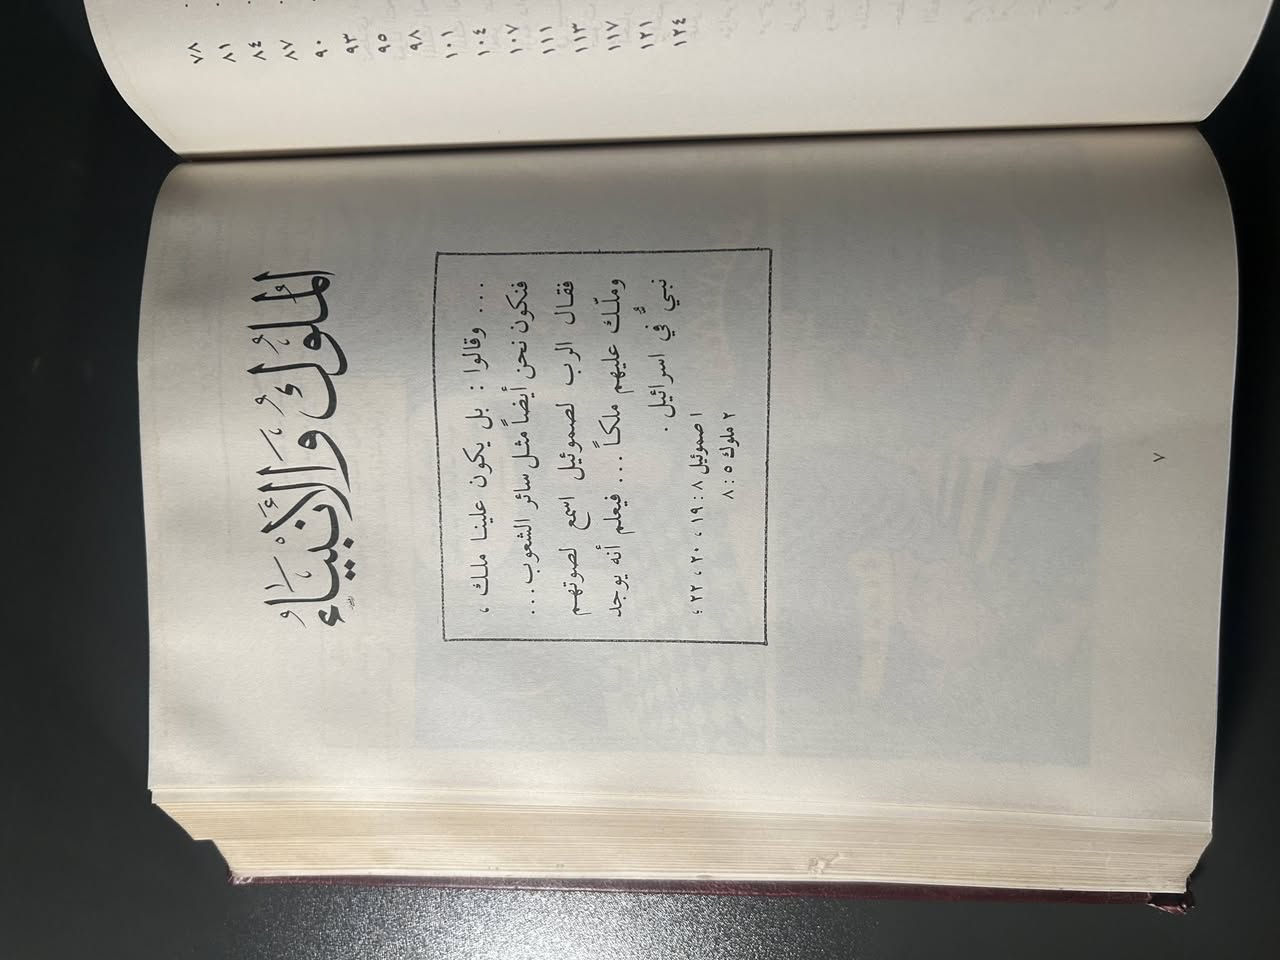 ٧٨
٨١
٨٤
٨٧
٩٠
٩٣
٩٥
٩٨
١٠١
١٠٤
١٠٧
١١١
١١٣
١١٧
١٢١
١٢٤
المُلُوكُ وَالأَنْبِيَاءُ
... وقالوا : بل يكون علينا ملك ،
فنكون نحن أيضاً مثل سائر الشعوب ...
فقال الرب لصموئيل اسمع لصوتهم
وملّك عليهم ملكاً ... فيعلم أنه يوجد
نبيٌّ في اسرائيل .
١ صموئيل ٨ : ١٩ ، ٢٠ ، ٢٢ ؛
٢ ملوك ٥ : ٨
٧